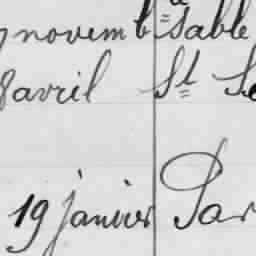 novemb Sable
8 avril St Se
19 janvier Par